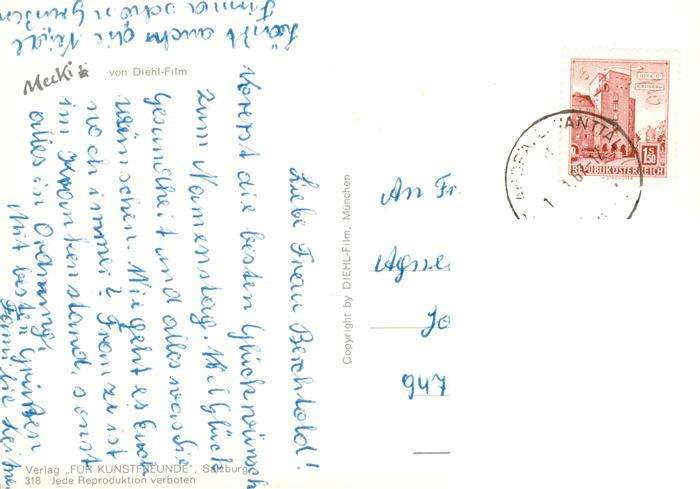 Liebe Frau Berchtold!
Vorerst die besten Glückwünsch
zum Namenstag. Viel Glück
Gesundheit und alles was Sie
wünschen. Wie geht es Euch
noch immer? Franz ist
im Krankenstand, sonst
alles in Ordnung.
Mit besten Grüßen
Familie
Läßt auch die
Firma schön grüßen
Mecki
von Diehl-Film
Verlag „FÜR KUNSTFREUNDE", Salzburg
318 Jede Reproduktion verboten
Copyright by DIEHL-Film, München
1 S 50
REPUBLIK ÖSTERREICH
An Fr.
Agne
Jo
947